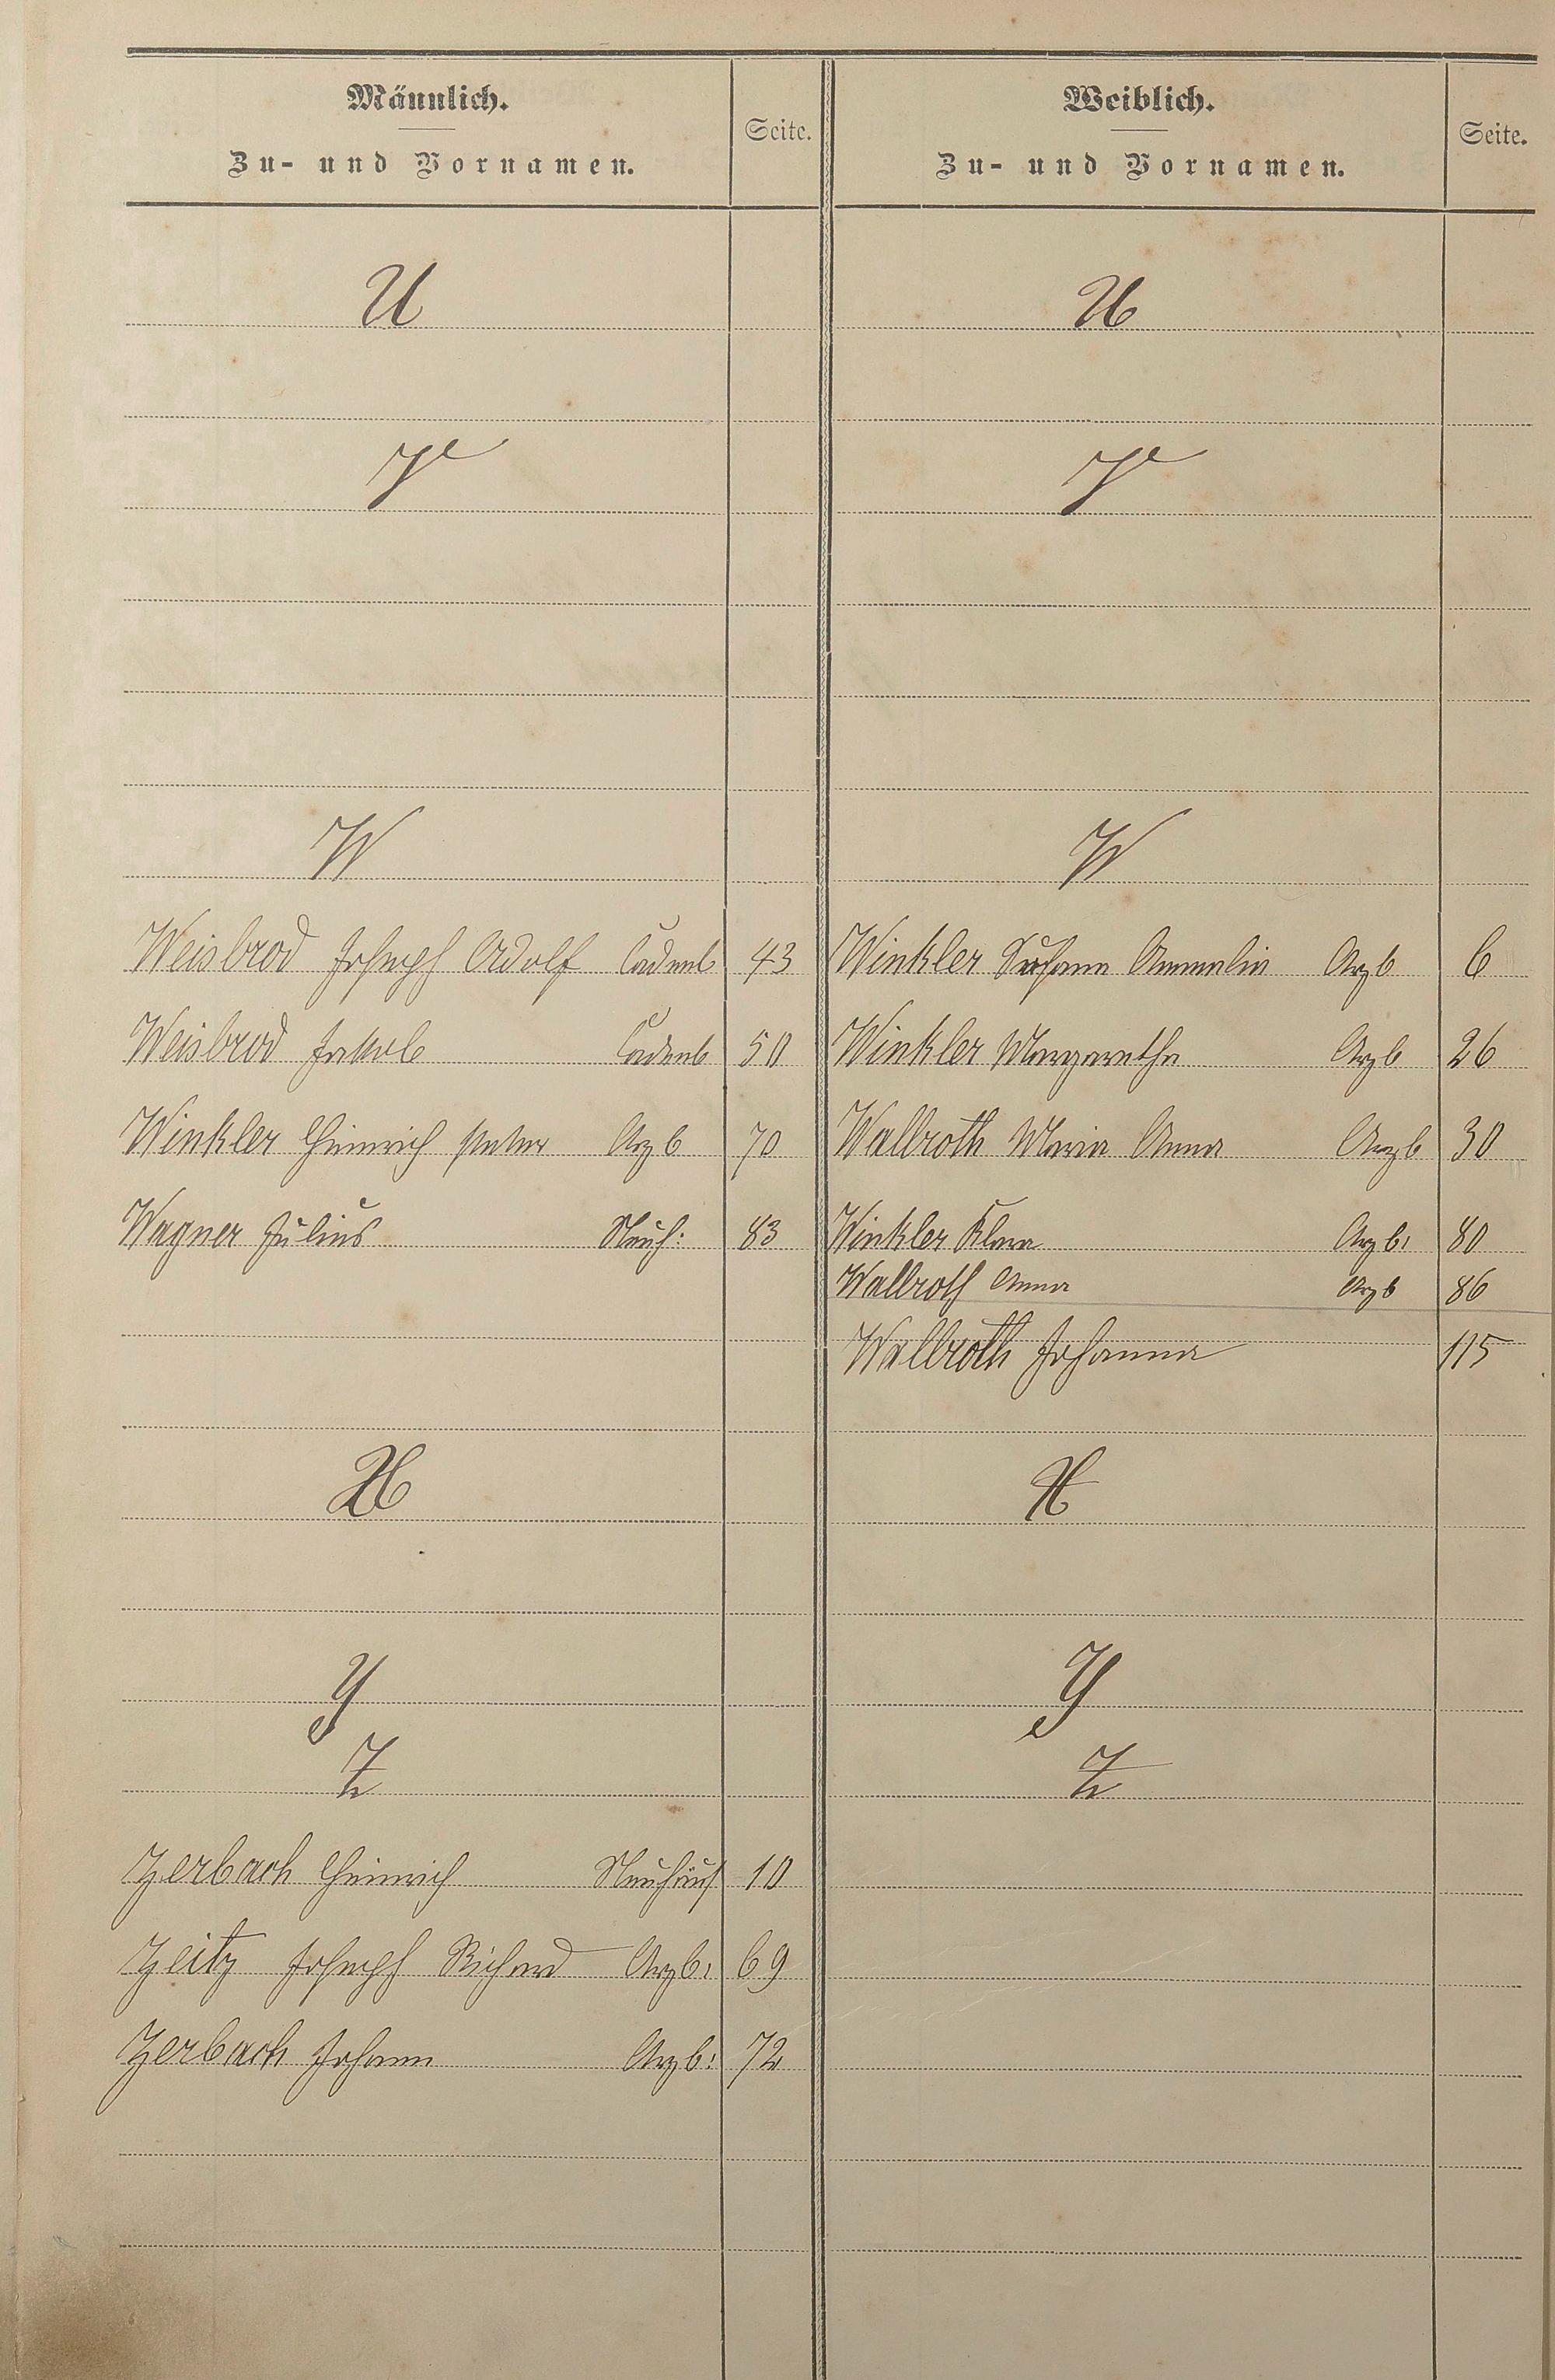 Männlich.
Zu- und Vornamen.
Seite.
U
V
W
Weisbrod Joseph Adolf Cadenb 43
Weisbrod Jakob Cadenb 50
Winkler Heinrich Peter Arzb 70
Wagner Julius Neuh: 83
X
Y
Z
Zerbach Heinrich Neuhäus 10
Zeitz Joseph Richard Arzb: 69
Zerbach Johann Arzb: 72
Weiblich.
Zu- und Vornamen.
Seite.
U
V
W
Winkler Susanna Ammalia Arzb 6
Winkler Margaretha Arzb 26
Wallroth Maria Anna Arzb 30
Winkler Klara Arzb: 80
Wallroth Anna Arzb 86
Wallroth Johanna 115
X
Y
Z